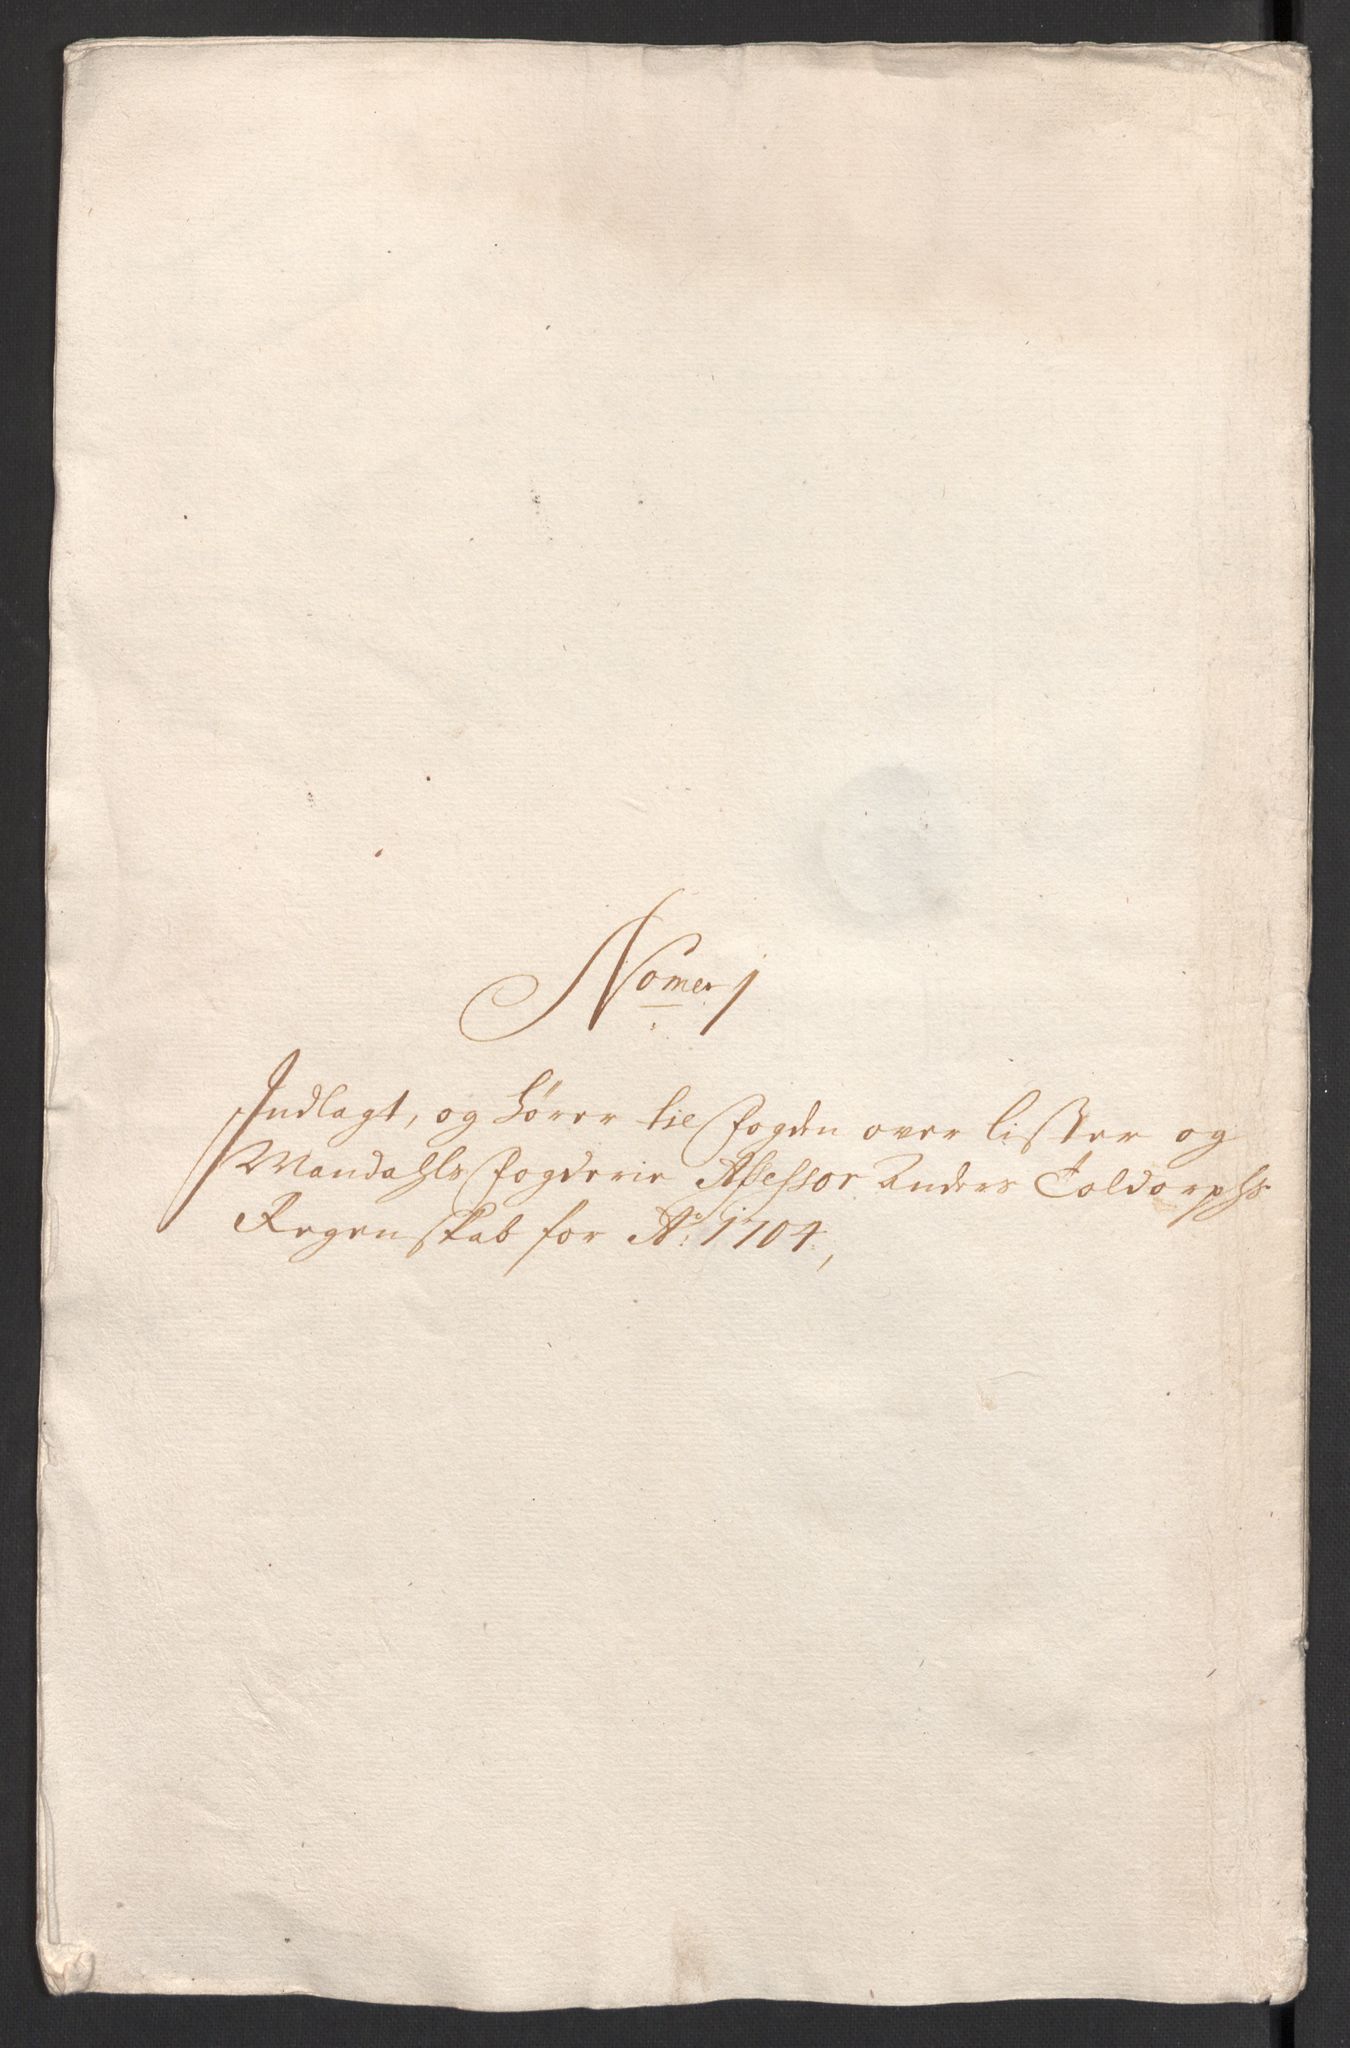 Nomer 1
Indlagt, og hører til fogden over lister og
Mandahls fogderie Assessor Anders Toldorphs
Regenskab for Ao: 1704,